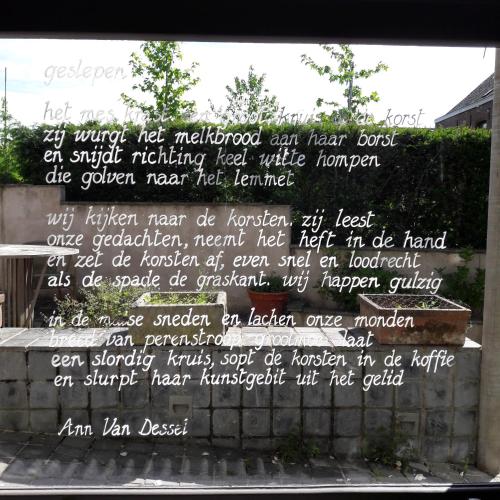 geslepen
het mes krast een kruis in de korst
zij wurgt het melkbrood aan haar borst
en snijdt richting keel witte hompen
die golven naar het lemmet
wij kijken naar de korsten. zij leest
onze gedachten, neemt het heft in de hand
en zet de korsten af, even snel en loodrecht
als de spade de graskant. wij happen gulzig
in de sneden en lachen onze monden
breed van perenstroop. grootmoe slaat
een slordig kruis, sopt de korsten in de koffie
en slurpt haar kunstgebit uit het gelid
Ann Van Dessel